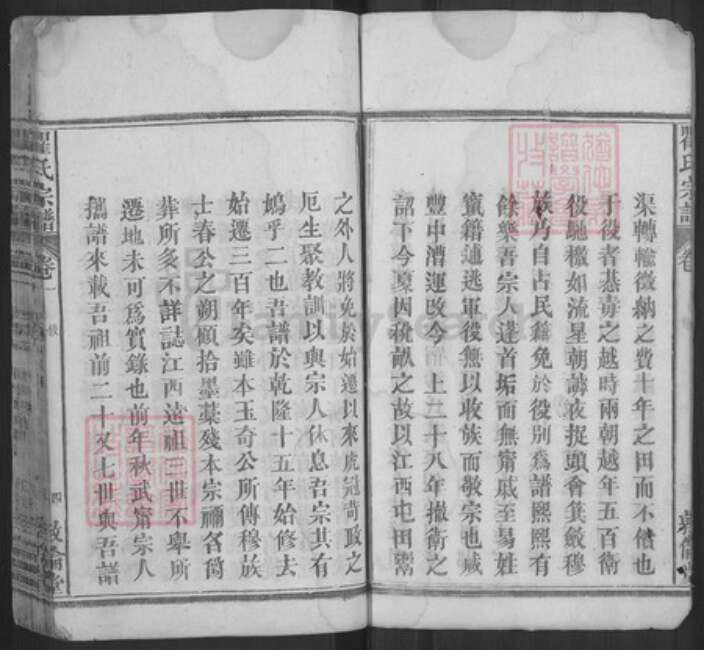 渠轉輸徵納之費十年之田而不償也
于役者惎毒之越時兩朝越年五百衛
役馳檄如流星朝講夜捉頭會箕斂穆
族乃自占民籍免於役別為譜熙熙有
餘樂吾宗人逢首垢而無甯戚至易姓
竄籍逋逃軍役無以收族而敬宗也咸
豐中漕運改今 上二十八年撤衛之
詔下今夏因稅畝之故以江西屯田鬻
之外人將免於始遷以來虎冠苛政之
厄生聚教訓以與宗人休息吾宗其有
鳩乎二也吾譜於乾隆十五年始修去
始遷三百年矣雖本玉奇公所傳穆族
士春公之朔顧拾墨藁殘本宗禰名簡
葬所多不詳誌江西遠祖三世不舉所
遷地未可為實錄也前年秋武甯宗人
攜譜來載吾祖前二十又七世與吾譜
瞿氏宗譜
卷一
四
敦倫堂
瞿氏宗譜
卷
敦倫堂
FamilySearch